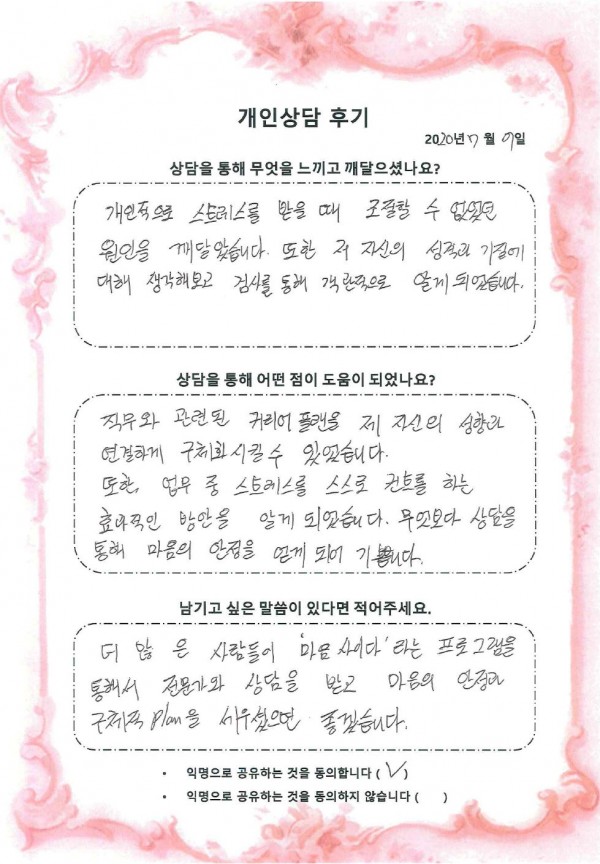 개인상담 후기
2020년 7월 9일
상담을 통해 무엇을 느끼고 깨달으셨나요?
개인적으로 스트레스를 받을 때 조절할 수 없었던
원인을 깨달았습니다. 또한 저 자신의 성격과 기질에
대해 생각해보고 검사를 통해 객관적으로 알게 되었습니다.
상담을 통해 어떤 점이 도움이 되었나요?
직무와 관련된 커리어 플랜을 제 자신의 성향과
연결하게 구체화시킬 수 있었습니다.
또한, 업무 중 스트레스를 스스로 컨트롤 하는
효과적인 방안을 알게 되었습니다. 무엇보다 상담을
통해 마음의 안정을 얻게 되어 기쁩니다.
남기고 싶은 말씀이 있다면 적어주세요.
더 많은 사람들이 '마음사이다'라는 프로그램을
통해서 전문가와 상담을 받고 마음의 안정과
구체적 plan을 세우셨으면 좋겠습니다.
• 익명으로 공유하는 것을 동의합니다 ( √ )
• 익명으로 공유하는 것을 동의하지 않습니다 ( )